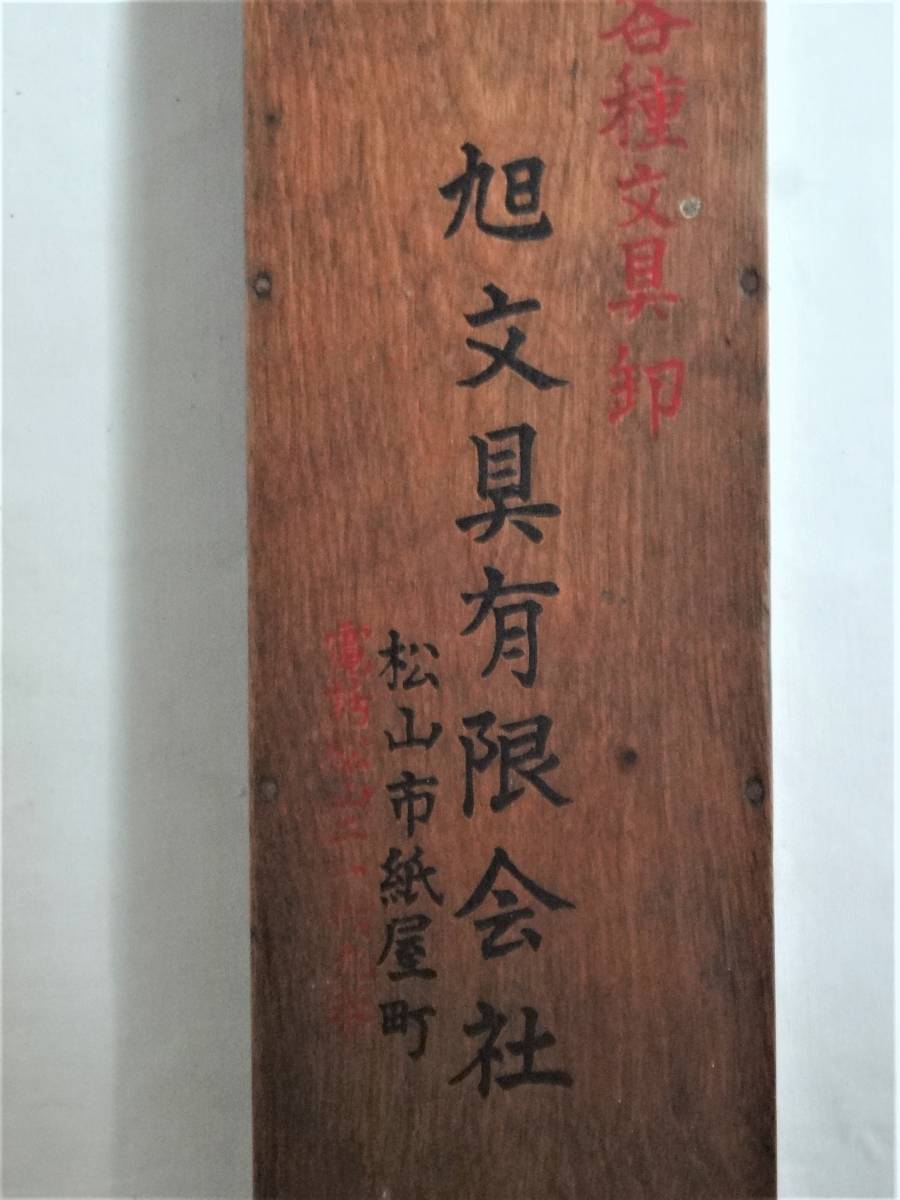 各種文具卸
旭文具有限会社
松山市紙屋町
電話松山二